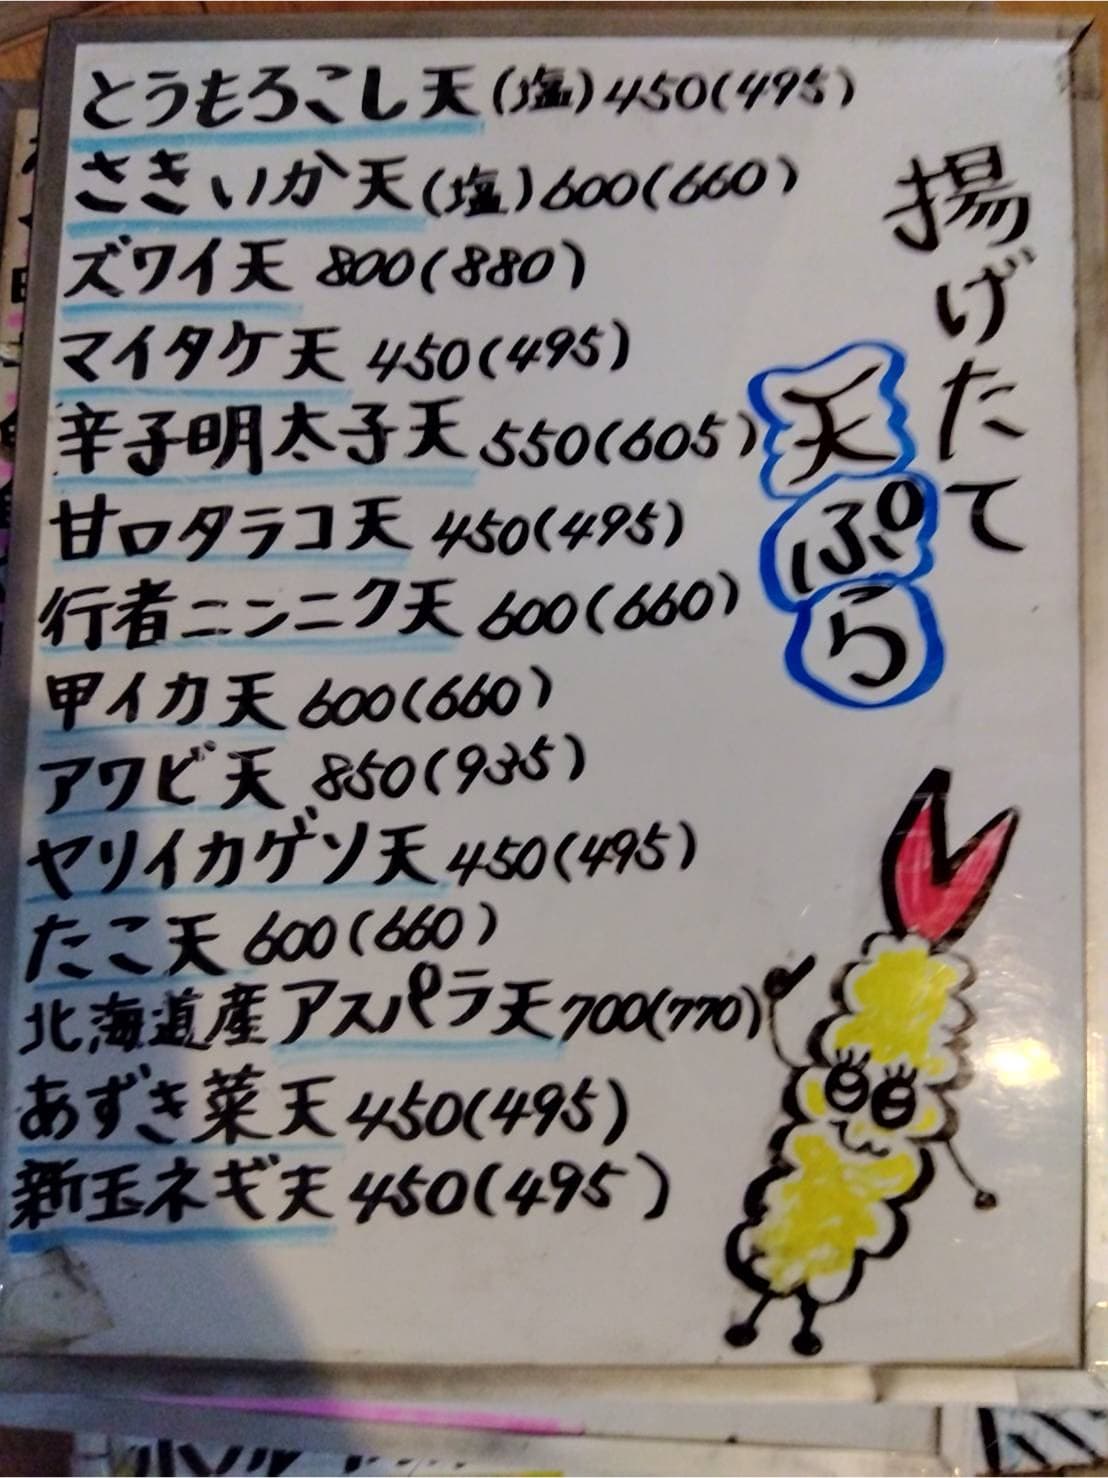 揚げたて
天ぷら
とうもろこし天(塩)450(495)
さきいか天(塩)600(660)
ズワイ天 800(880)
マイタケ天 450(495)
辛子明太子天 550(605)
甘口タラコ天 450(495)
行者ニンニク天 600(660)
甲イカ天 600(660)
アワビ天 850(935)
ヤリイカゲソ天 450(495)
たこ天 600(660)
北海道産アスパラ天 700(770)
あずき菜天 450(495)
新玉ネギ天 450(495)